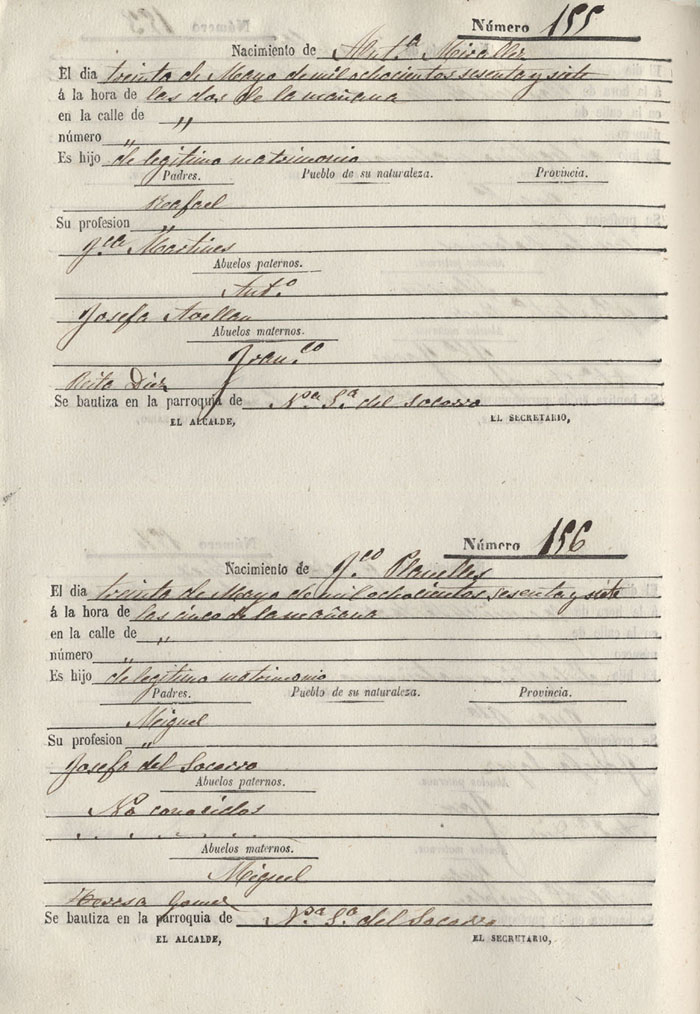 Número 155
Nacimiento de Ant.ª Miralles
El dia treinta de Mayo de mil ochocientos sesenta y siete
á la hora de las dos de la mañana
en la calle de „
número „
Es hijo de legitimo matrimonio
Padres. Pueblo de su naturaleza. Provincia.
Rafael
Su profesion „
Martines
Abuelos paternos.
Ant.º
Josefa Avellan
Abuelos maternos.
Fran.co
Rita Diez
Se bautiza en la parroquia de N.ra S.ra del Socorro
EL ALCALDE, EL SECRETARIO,
Número 156
Nacimiento de Planelles
El dia treinta de Mayo de mil ochocientos sesenta y siete
á la hora de las cinco de la mañana
en la calle de „
número „
Es hijo de legitimo matrimonio
Padres. Pueblo de su naturaleza. Provincia.
Miguel
Su profesion „
Josefa del Socorro
Abuelos paternos.
No conocidos
Abuelos maternos.
Miguel
Teresa Gomez
Se bautiza en la parroquia de N.ra S.ra del Socorro
EL ALCALDE, EL SECRETARIO,